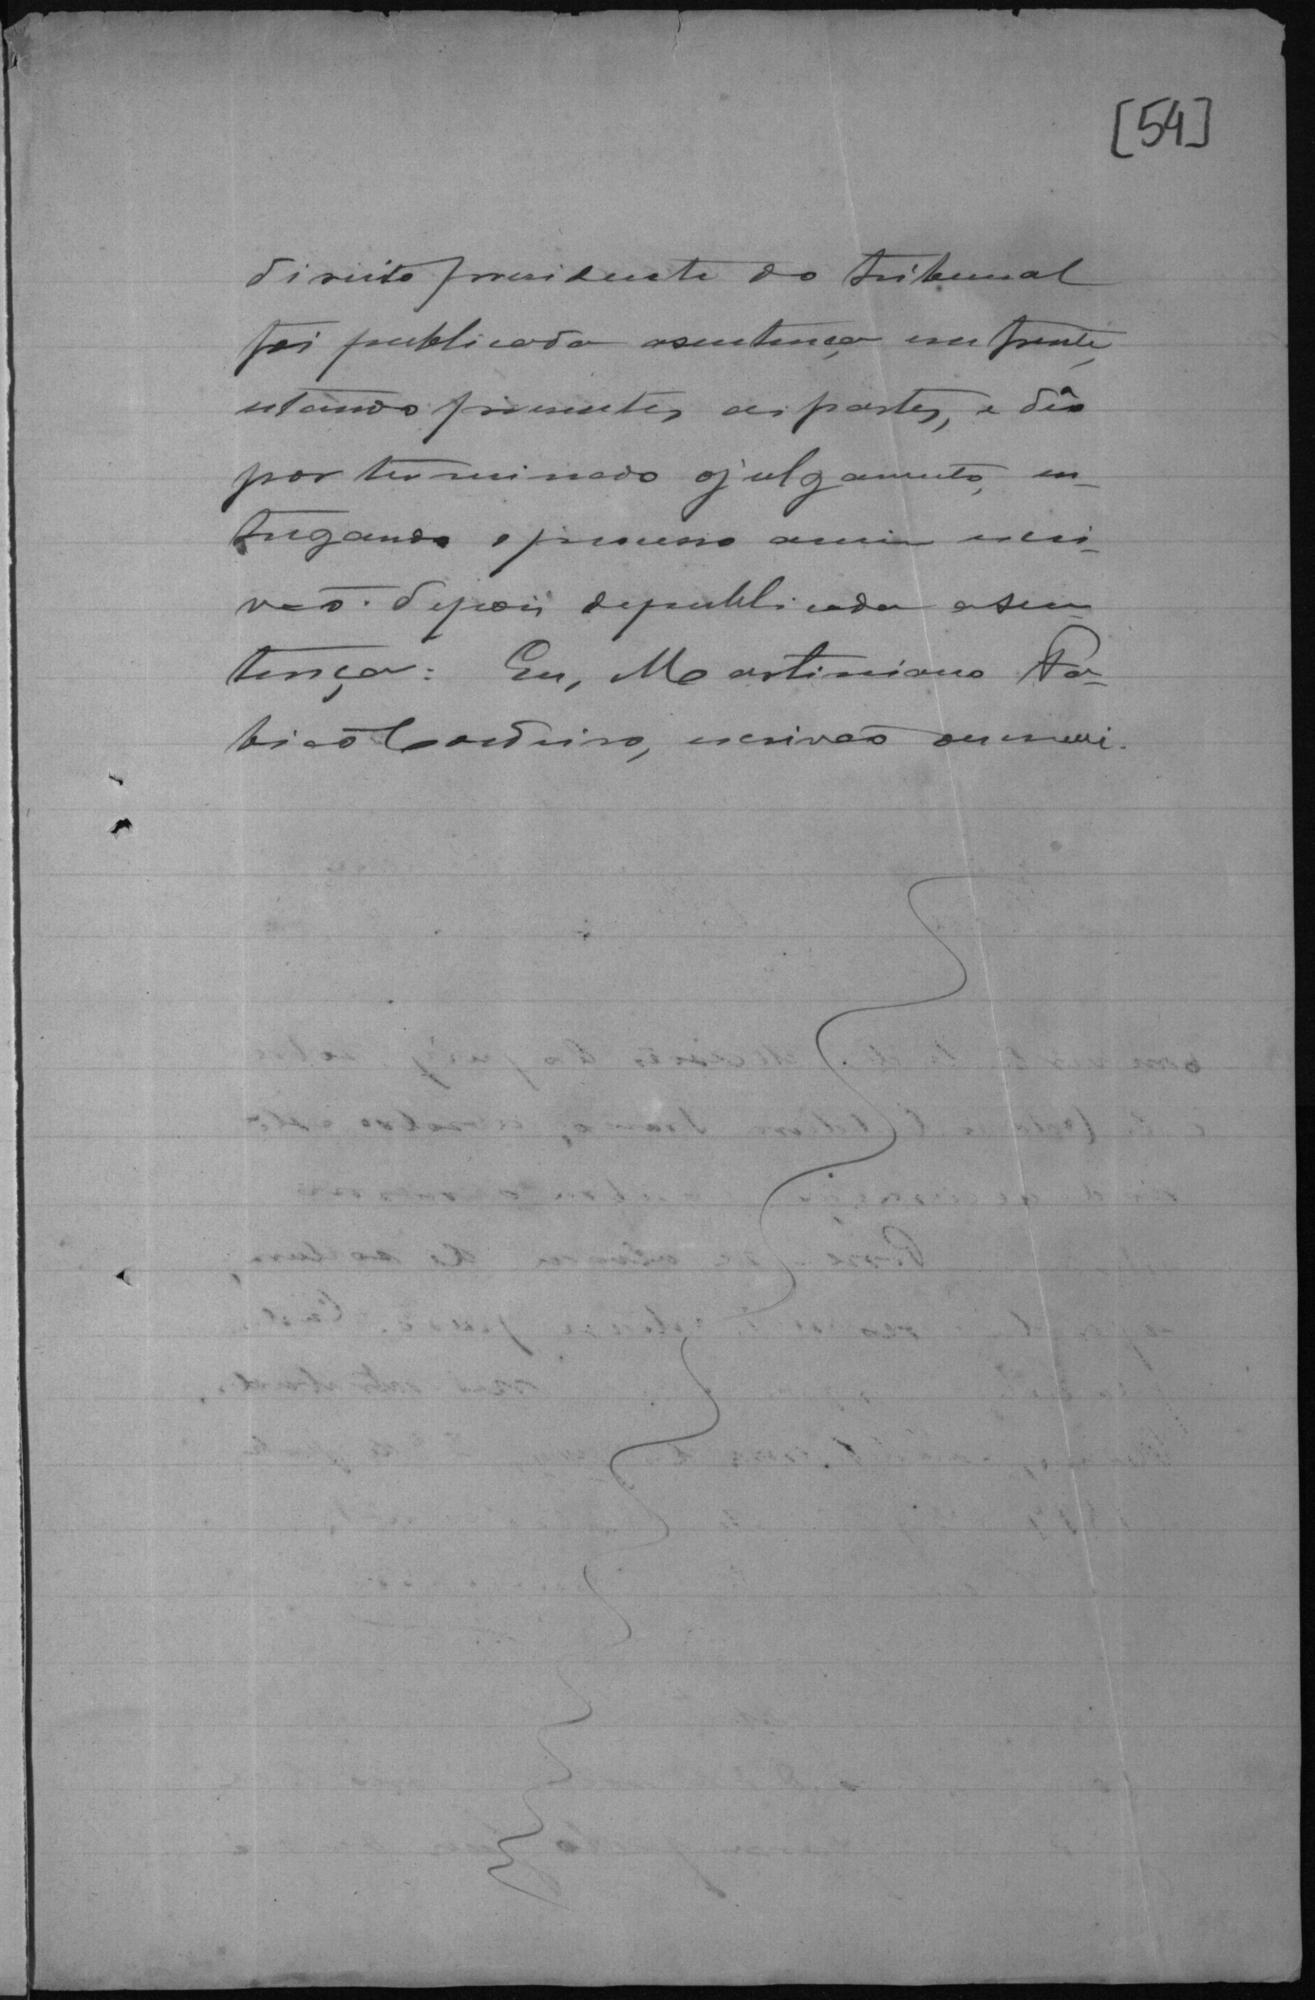 [54]
direito presidente do tribunal
foi publicada asentença em frente,
estando presentes as partes, e deo
por terminado ojulgamento, en-
tregando o processo amim escri-
vão. depois depublicada asen-
tença: Eu, Martiniano Fa-
bião Cordeiro, escrivão oescrevi.